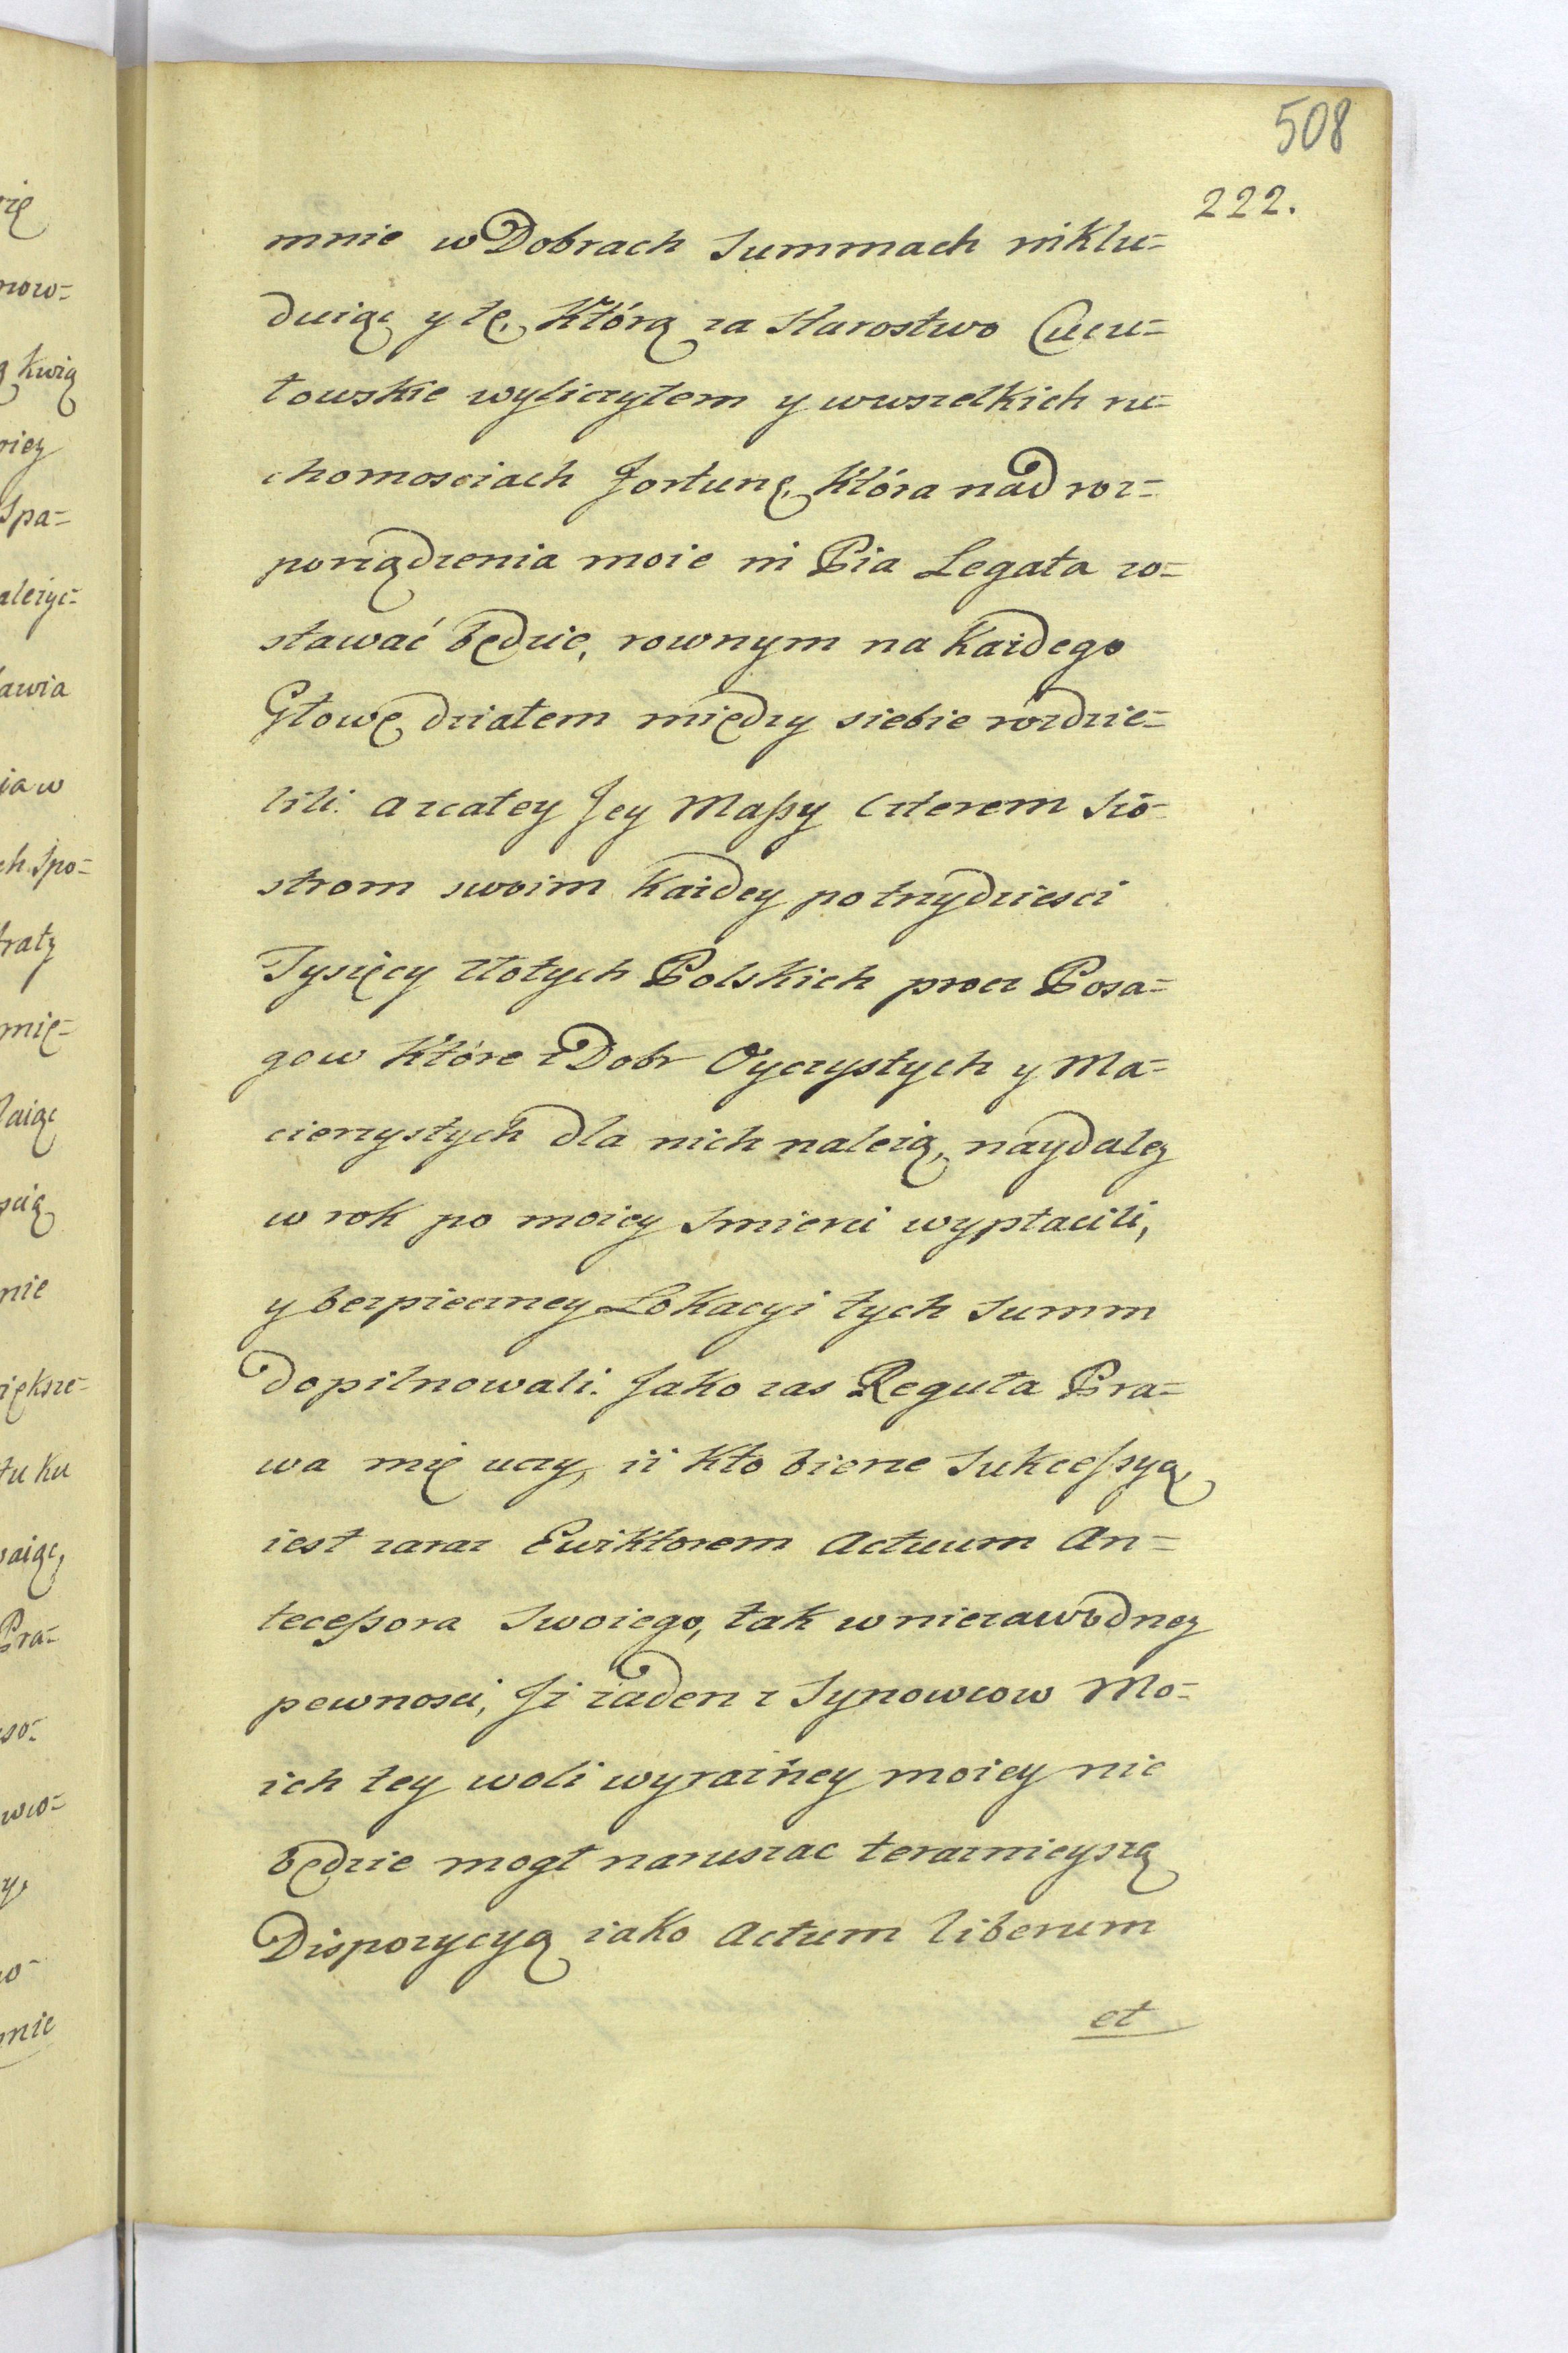 508
222.
mnie w Dobrach Summach niklu=
duiąc y tę, Którą za Starostwo Cuzu=
łowskie wyliczyłem y wwszelkich ru=
chomosciach Fortunę, Która nad roz=
porządzenia moie ni Pia Legata zo=
stawać będzie, rownym na Każdego
Głowę działem między siebie rozdzie=
lili. a zcałey Jey Massy Czterem Sio=
strom swoim Każdey po trzydziesci
Tysięcy Złotych Polskich procz Posa=
gow Które z Dobr Oyczystych y Ma=
cierzystych dla nich należą, naydaley
w rok po moiey Smierci wypłacili,
y bezpieczney Lokacyi tych Summ
dopilnowali. Jako zas Reguła Pra=
wa mię uczy, iż Kto bierze Sukcessyą,
iest zaraz Ewiktorem Actuum An=
tecessora Swoiego, tak w niezawodney
pewnosci, Jż żaden z Synowcow Mo=
ich tey woli wyraźney moiey nie
będzie mogł naruszac teraznieyszą
Dispozycyą iako Actum liberum
et